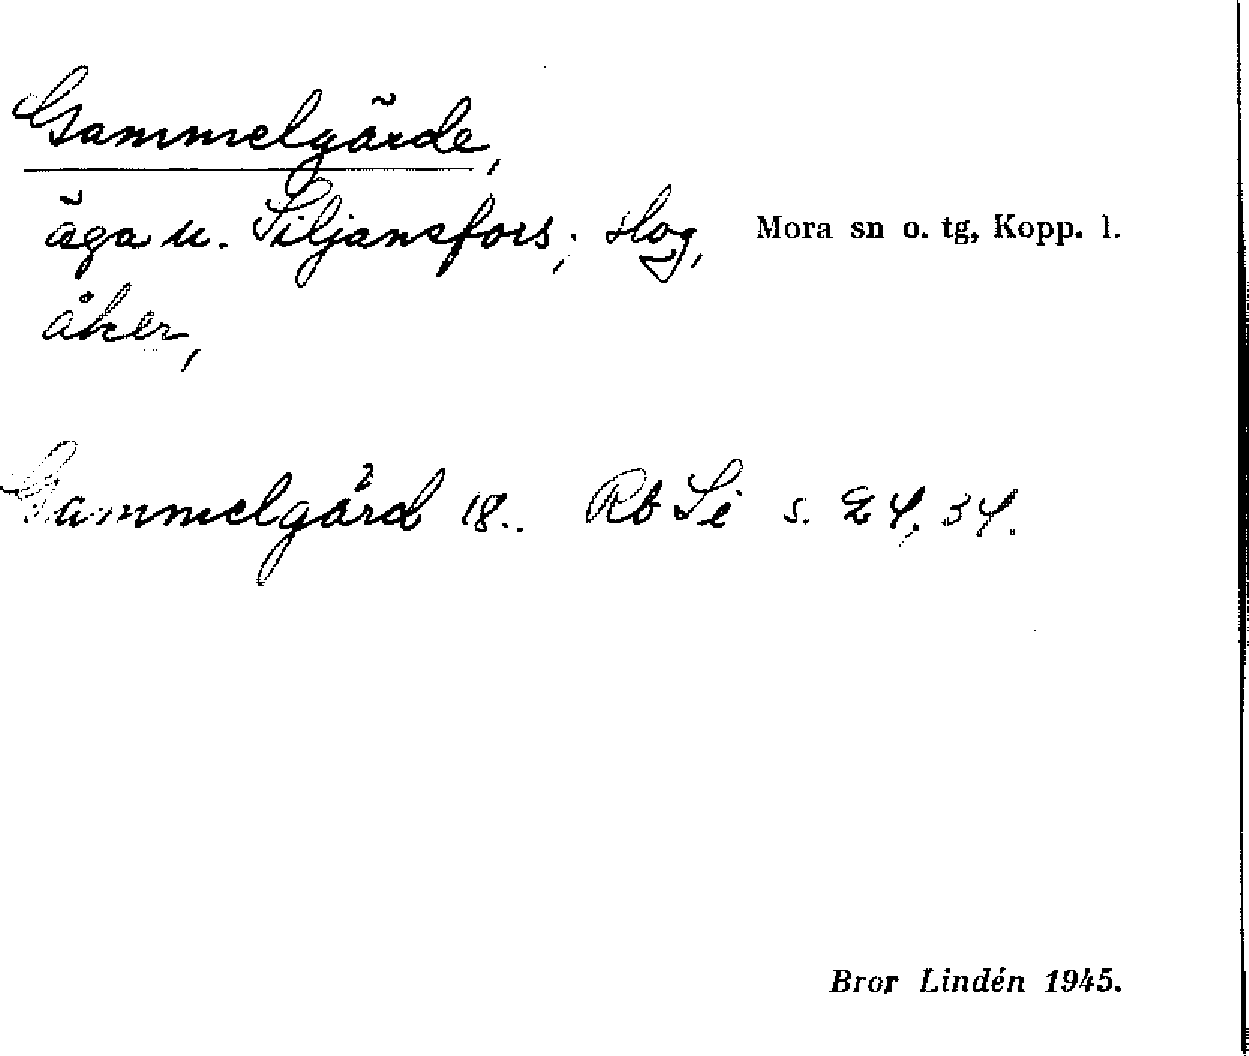 Gammelgärde,
äga u. Siljansfors; slog, Mora sn o. tg, Kopp. l.
åker,
Gammelgård 18.. Rb Si s. 24, 34.
Bror Lindén 1945.